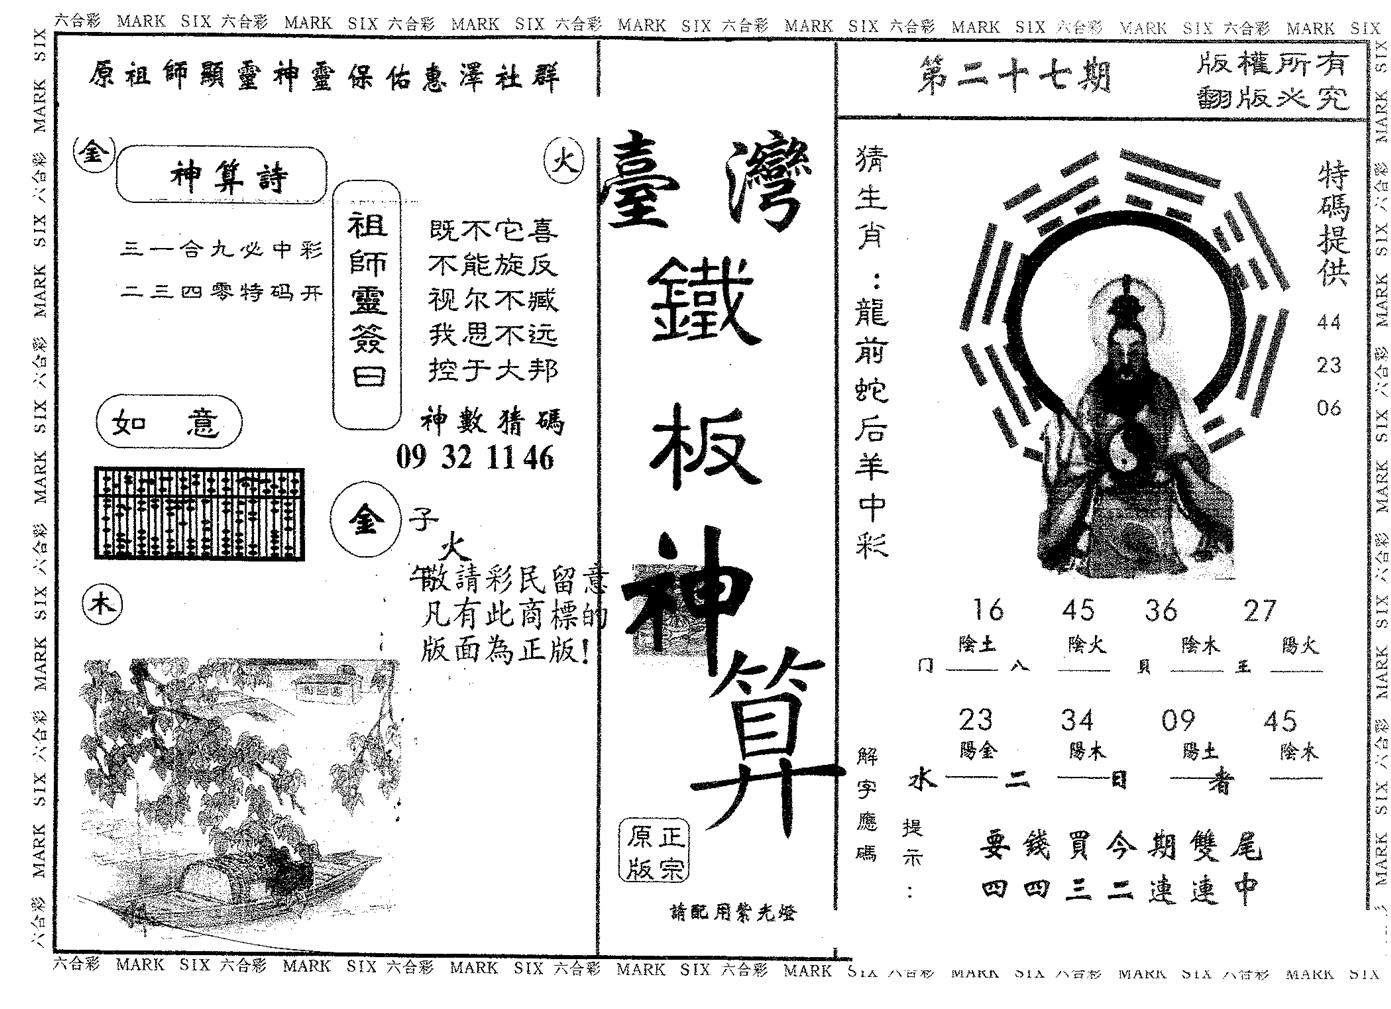 六合彩 MARK SIX 六合彩 MARK SIX 六合彩 MARK SIX 六合彩 MARK SIX 六合彩 MARK SIX 六合彩 MARK SIX 六合彩 MARK SIX 六合彩 MARK SIX
原祖師顯靈神靈保佑惠澤社群
金
神算詩
火
三一合九必中彩
二三四零特码开
祖師靈簽曰
既不它喜
不能旋反
视尔不臧
我思不远
控于大邦
神數猜碼
09 32 11 46
如意
金
子
火
午
敬請彩民留意
凡有此商標的
版面為正版!
木
臺灣
鐵
板
神
算
正宗
原版
請配用紫光燈
第二十七期
版權所有
翻版必究
猜生肖:龍前蛇后羊中彩
特碼提供
44
23
06
16 45 36 27
陰土 陰火 陰木 陽火
门 八 貝 王
23 34 09 45
陽金 陽木 陽土 陰木
水 二 日 者
解字應碼
提示:
要錢買今期雙尾
四四三二連連中
六合彩 MARK SIX 六合彩 MARK SIX 六合彩 MARK SIX 六合彩 MARK SIX 六合彩 MARK SIX 六合彩 MARK SIX 六合彩 MARK SIX 六合彩 MARK SIX